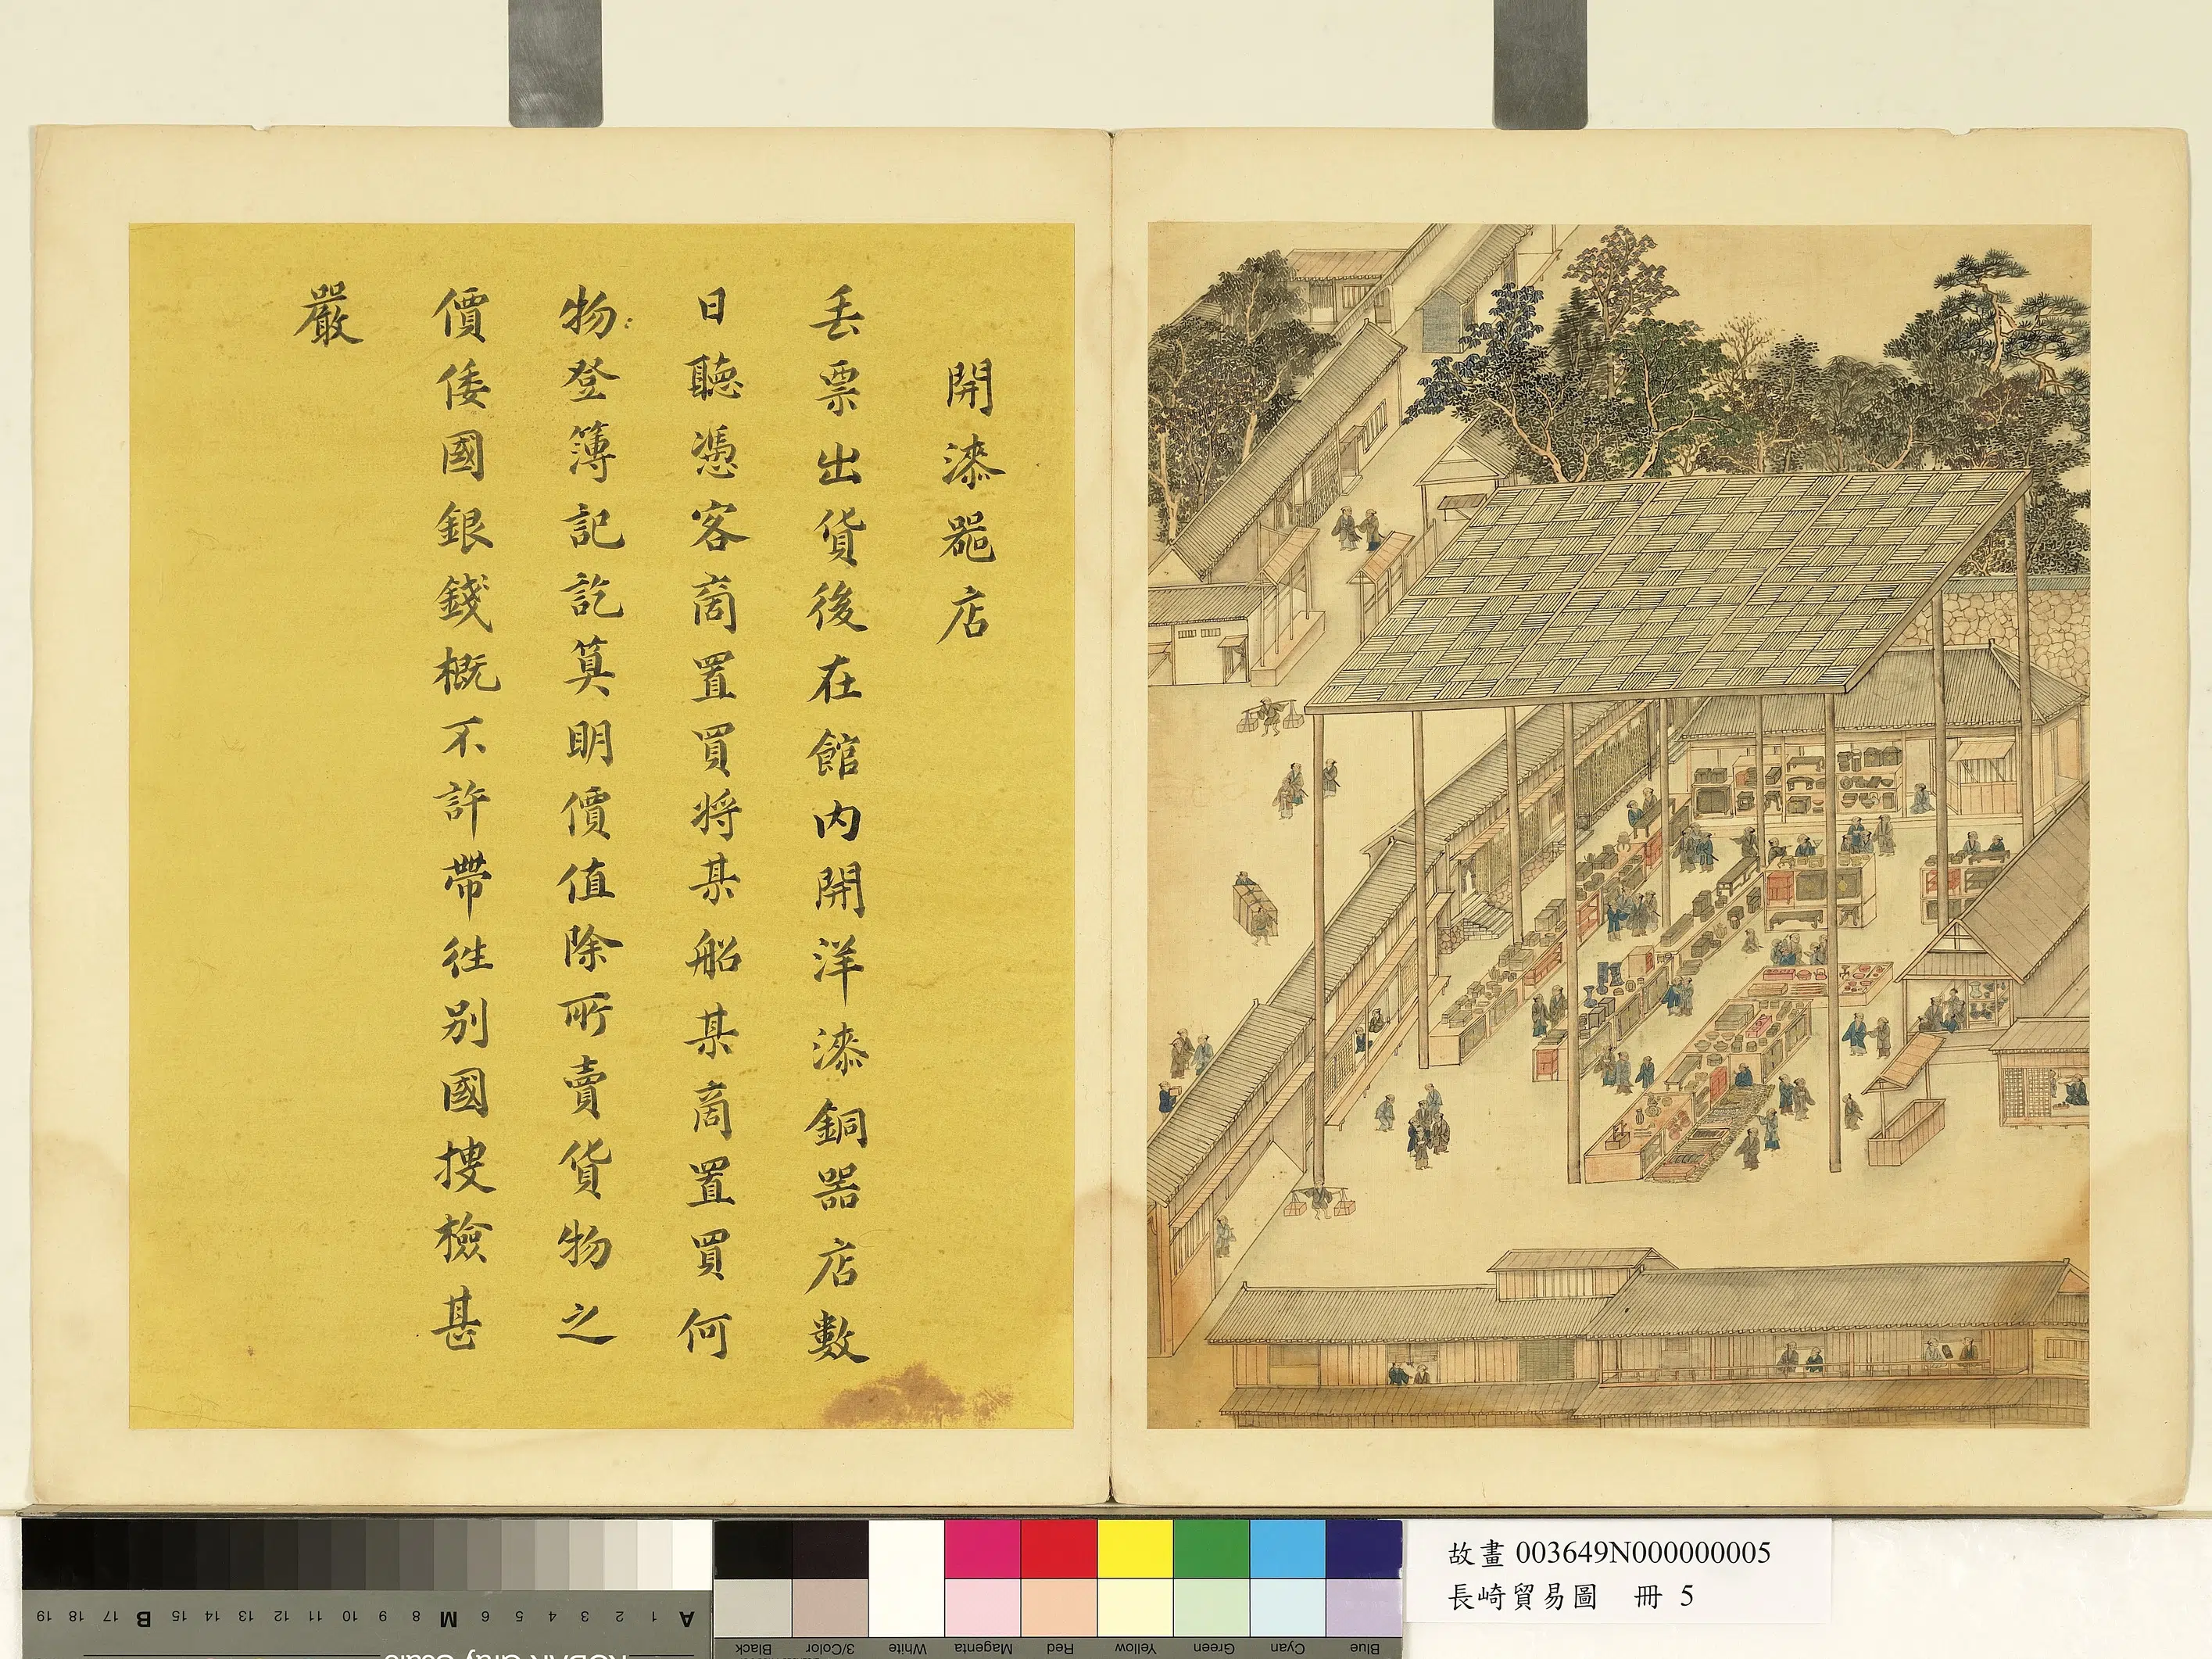 開漆噐店
丢票出貨後在館内開洋漆銅器店數
日聽憑客商置買将某船某商置買何
物登簿記訖算明價值除所賣貨物之
價倭國銀錢概不許帶徃别國搜檢甚
嚴
故畫 003649N000000005
長崎貿易圖 冊 5
A 1 2 3 4 5 6 M 8 9 10 11 12 13 14 15 B 17 18 19
Blue Cyan Green Yellow Red Magenta White 3/Color Black